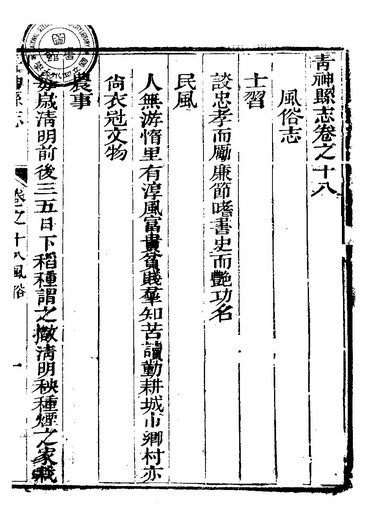 青神縣志卷之十八
風俗志
士習
談忠孝而勵廉節嗜書史而艷功名
民風
人無游惰里有淳風富貴貧賤羣知苦讀勤耕城市鄉村亦
尙衣冠文物
農事
每歲清明前後三五日下稻種謂之撒清明秧種煙之家栽
縣志
卷之十八風俗
一